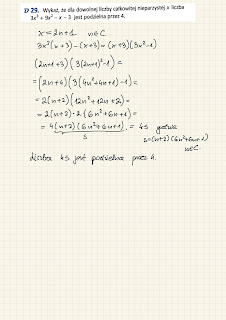 29. Wykaż, że dla dowolnej liczby całkowitej nieparzystej x liczba
3x³ + 9x² − x − 3 jest podzielna przez 4.
x = 2n+1   n∈C
3x²(x+3)−(x+3) = (x+3)(3x²−1)
(2n+1+3)(3(2n+1)²−1) =
= (2n+4)(3(4n²+4n+1)−1) =
= 2(n+2)(12n²+12n+2) =
= 2(n+2)·2(6n²+6n+1) =
= 4(n+2)(6n²+6n+1) = 4s gdzie
s s=(n+2)(6n²+6n+1)
n∈C
Liczba 4s jest podzielna przez 4.